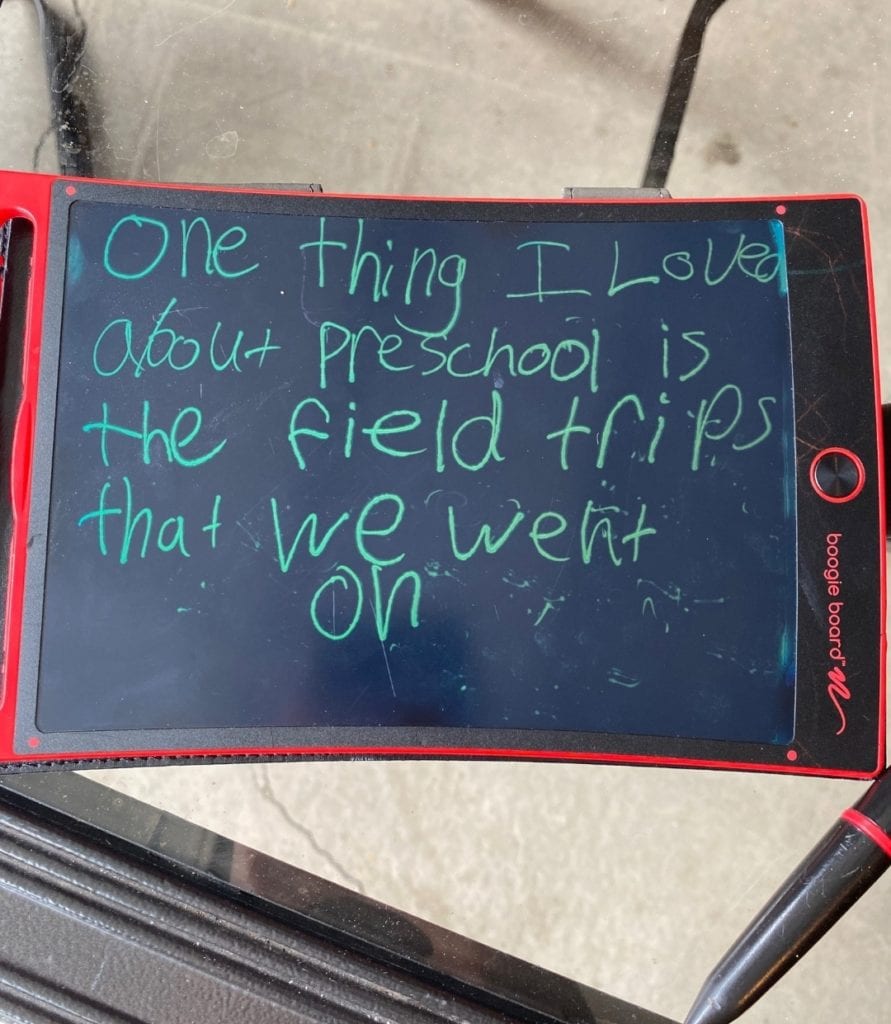 One thing I Loved
about preschool is
the field trips
that we went
on
boogie board™